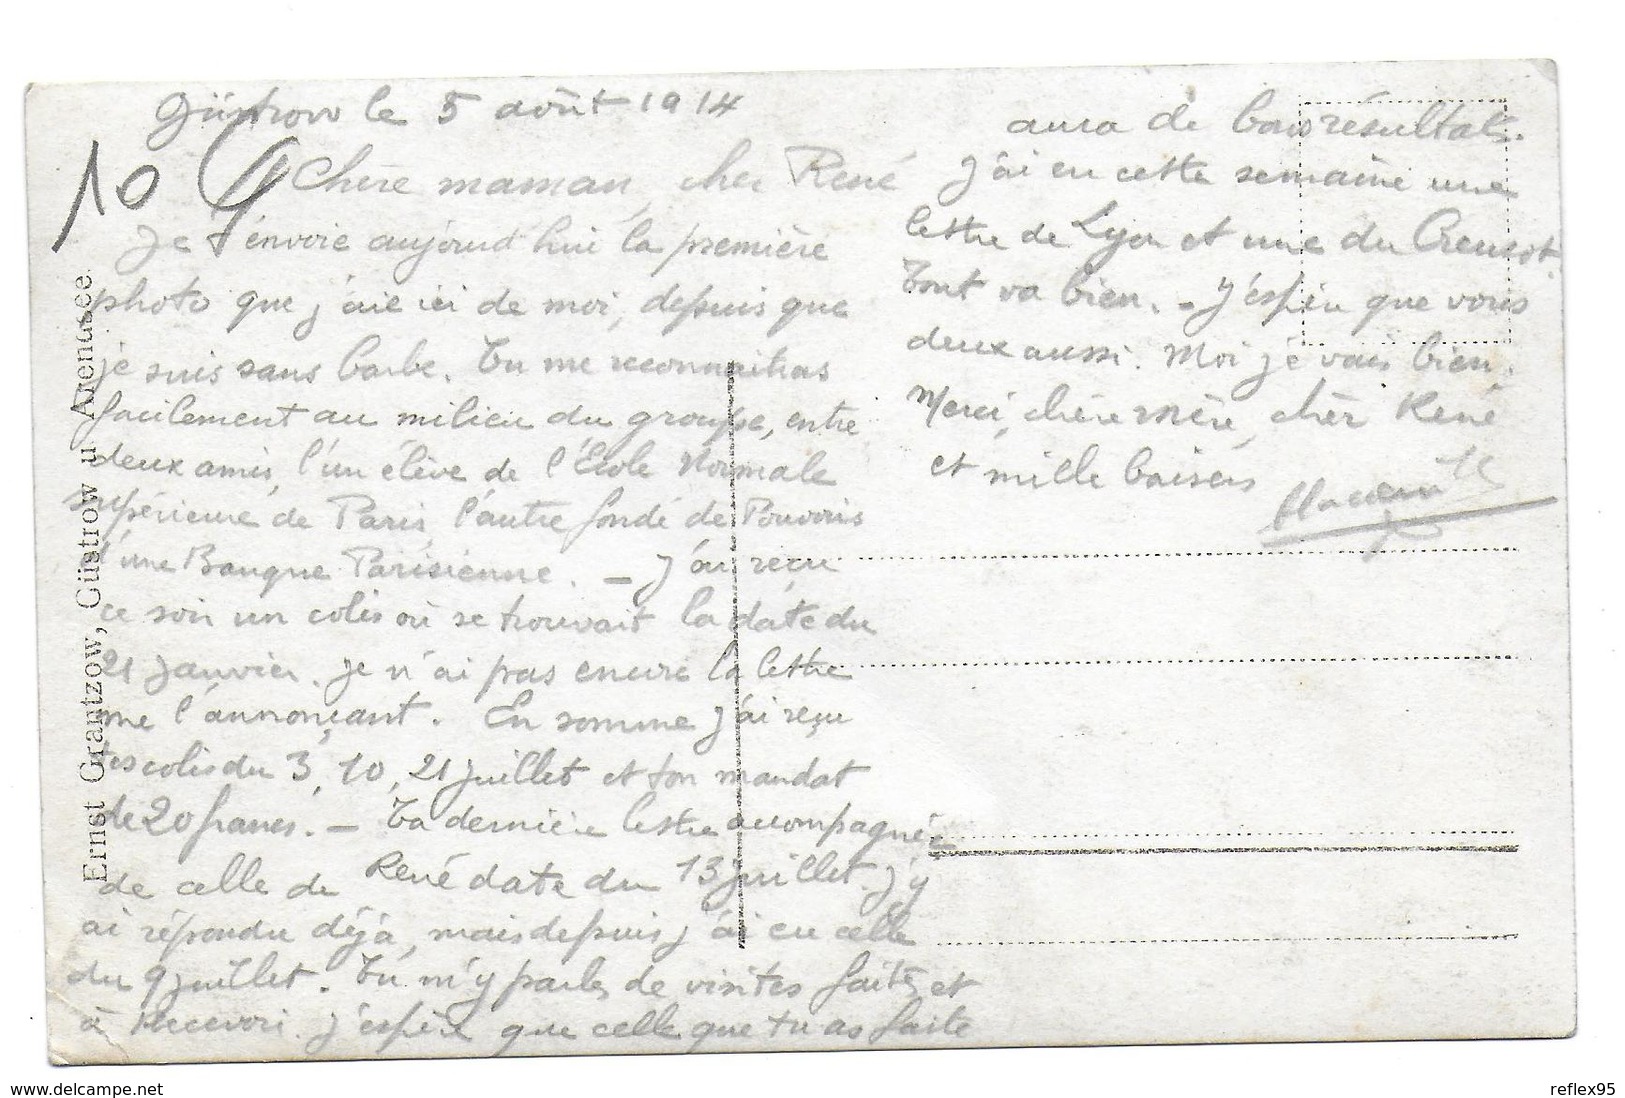 Güstrow le 5 août 1914
10
Chère maman, cher René
Je t'envoie aujourd'hui la première
photo que j'aie ici de moi, depuis que
je suis sans barbe. Tu me reconnaitras
facilement au milieu du groupe, entre
deux amis, l'un élève de l'École Normale
supérieure de Paris, l'autre fondé de Pouvoirs
d'une Banque Parisienne. — J'ai reçu
ce soir un colis où se trouvait la date du
21 janvier. Je n'ai pas encore la lettre
me l'annonçant. En somme j'ai reçu
tes colis du 3, 10, 21 juillet et ton mandat
de 20 francs. — Ta dernière lettre accompagnée
de celle de René date du 13 juillet. J'y
ai répondu déjà, mais depuis j'ai eu celle
du 9 juillet. Tu m'y parles de visites faites et
à recevoir. J'espère que celle que tu as faite
aura de bons résultats.
J'ai eu cette semaine une
lettre de Lyon et une du Creusot.
Tout va bien. — J'espère que vous
deux aussi. Moi je vais bien.
Merci, chère mère, cher René
et mille baisers
Ernst Grantzow, Güstrow u Arendsee
www.delcampe.net
reflex95